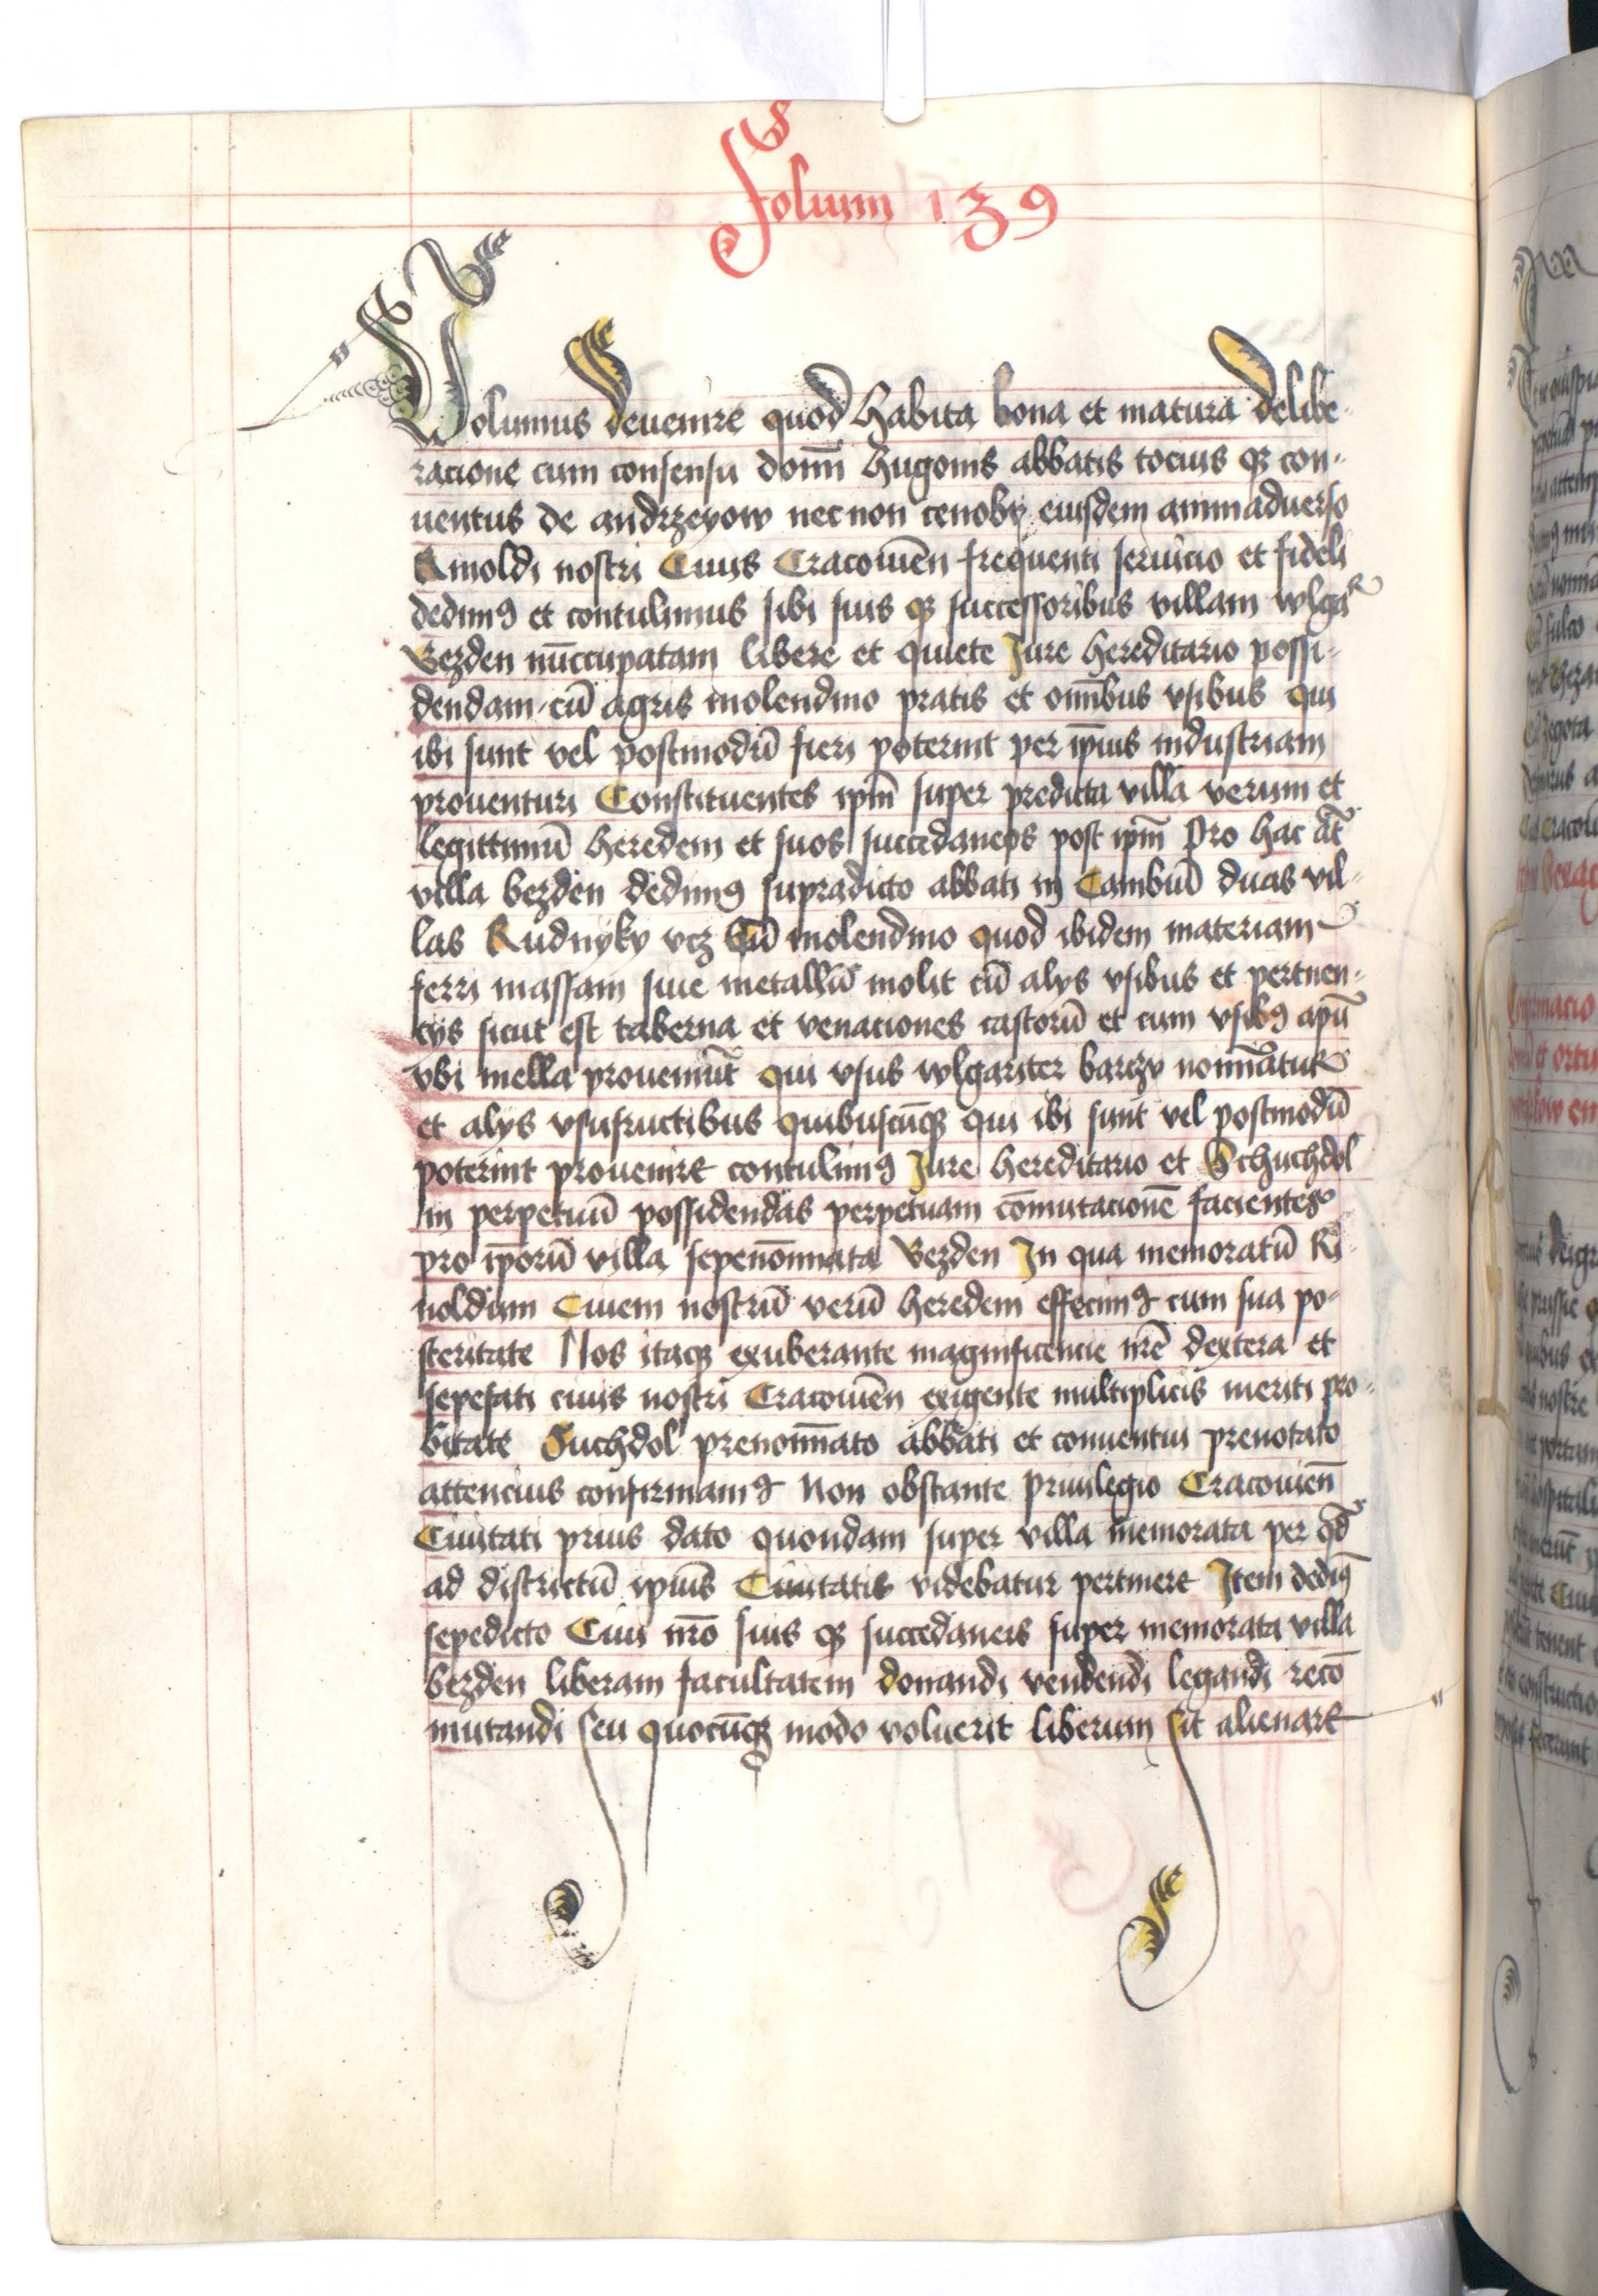 Folium 139
Volumus deuenire quod habita bona et matura delibe-
racione cum consensu domī hugonis abbatis tocius qꝫ con-
uentus de andrzeyow necnon cenobij eiusdem animaduerso
Rinoldi nostri Ciuis Cracouieñ frequenti seruicio et fideli
dedimꝰ et contulimus sibi suis qꝫ successoribus villam wlgaꝛ
Bezden nūccupatam libere et quiete Jure hereditario possi-
dendam cū agris molendino pratis et oīmbus vsibus qui
ibi sunt vel postmodū fieri poterint per ip̄ius industriam
prouenturi Constituentes ip̄m super predicta villa verum et
legittimū heredem et suos succedaneos post ip̄m Pro hac āt
villa bezden dedimꝰ supradicto abbati in Cambiū duas vil-
las Rudnyky vcꝫ Cū molendino quod ibidem materiam
ferri massam siue metallū molit cū alys vsibus et pertinen-
cys sicut est taberna et venaciones castorū et cum vsibꝰ apū
vbi mella proueniūt qui vsus wlgariter barczy nomīatur
et alys vsufructibus quibuscūqꝫ qui ibi sunt vel postmodū
poterint prouenire contulimꝰ Jure hereditario et Schuchdol
in perpetuū possidendas perpetuam cōmutacionē facientes
pro ip̄orū villa sepenōminata Bezden In qua memoratū Ri-
noldum Ciuem nostrū verū heredem effecimꝰ cum sua po-
steritate Nos itaqꝫ exuberante magnificencie nr̄e dextera et
sepefati ciuis nostri Cracouieñ exigente multiplicis meriti pro-
bitate Suchdol prenomīato abbati et conuentui prenotato
attencius confirmamꝰ Non obstante priuilegio Cracouieñ
Ciuitati prius dato quondam super villa memorata per qd̄
ad districtū ip̄ius Ciuitatis videbatur pertinere Item dedimꝰ
sepedicto Ciui nr̄o suis qꝫ succedaneis super memorata villa
bezden liberam facultatem donandi vendendi legandi recō
mutandi seu quocūqꝫ modo voluerit liberum sit alienare